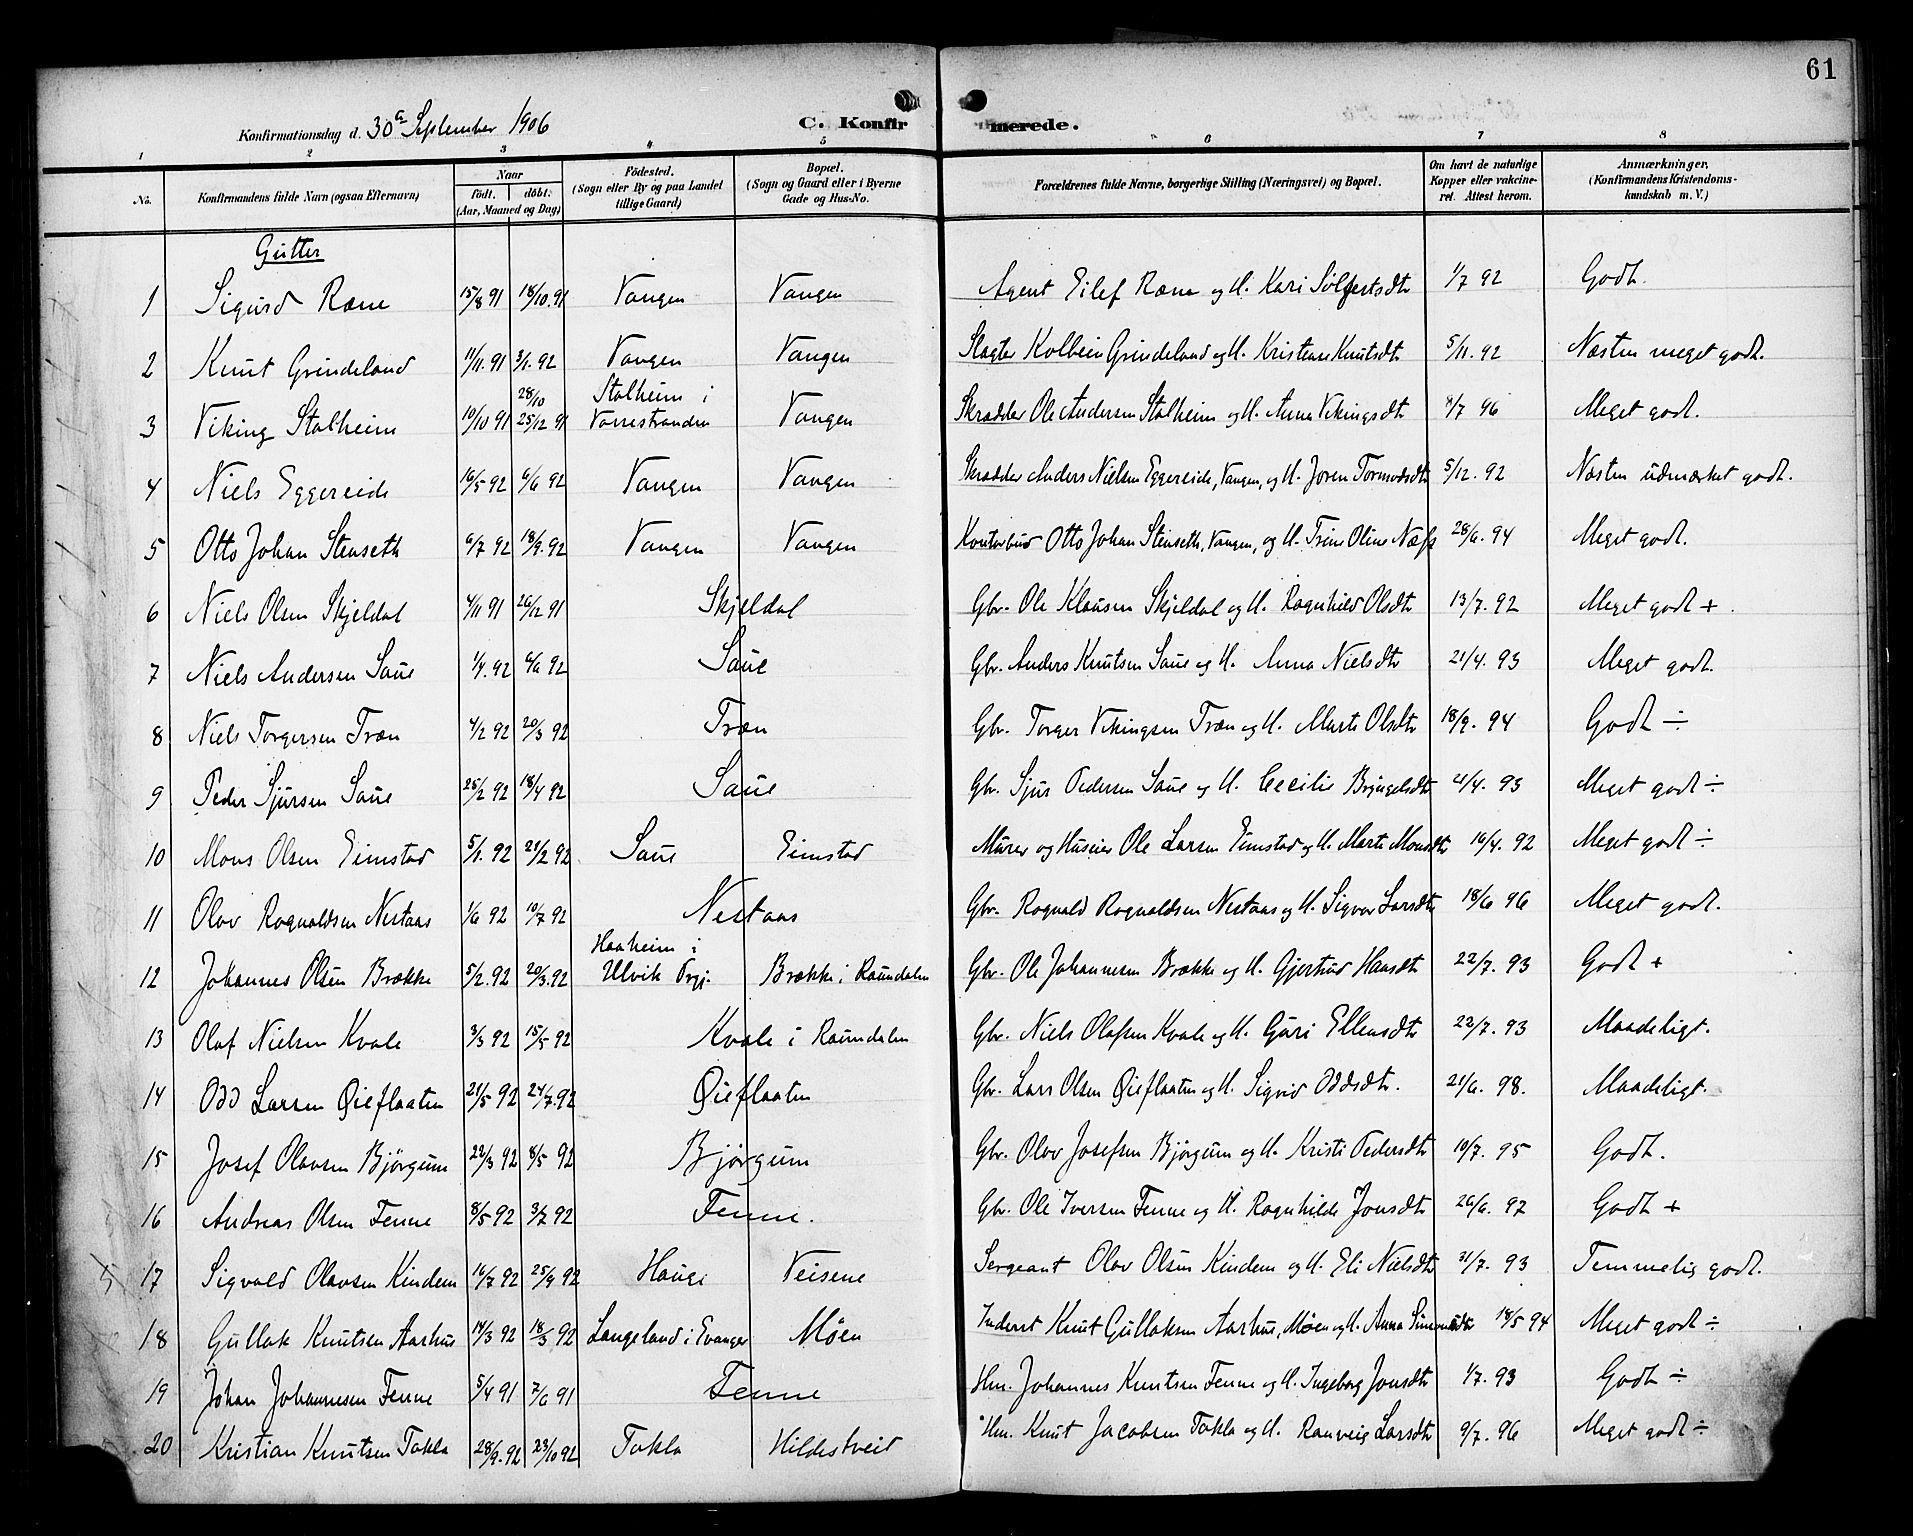 61
Konfirmationsdag d. 30te September 1906
C. Konfirmerede.
1 2 3 4 5 6 7 8
No. Konfirmandens fulde Navn (ogsaa Efternavn) Naar født. døbt. (Aar, Maaned og Dag) Fødested. (Sogn eller By og paa Landet tillige Gaard) Bopæl. (Sogn og Gaard eller i Byerne Gade og Hus-No. Forældrenes fulde Navne, borgerlige Stilling (Næringsvei) og Bopæl. Om havt de naturlige Kopper eller vakcineret. Attest herom. Anmærkninger. (Konfirmandens Kristendomskundskab m. V.)
Gutter
1 Sigurd Ræne 15/8 91 18/10. 91 Vangen Vangen Agent Eilef Ræne og H. Kari Sølfestsdtr 1/7 92 Godt.
2 Knut Grindeland 11/11. 91 3/1. 92 Vangen Vangen Slagter Kolbein Grindeland og H. Kristense Knutsdtr 5/11. 92 Næsten meget godt.
3 Viking Stalheim 10/10 91 28/10 25/12 91 Stalheim i Vossestranden Vangen Skrædder Ole Andersen Stalheim og H. Anna Vikingsdtr 4/7 96 Meget godt.
4 Niels Eggereide 16/5 92 6/6 92 Vangen Vangen Skrædder Anders Nielsen Eggereide, Vangen, og H. Joren Tormodsdtr 5/12. 92 Næsten udmærket godt.
5 Otto Johan Stenseth 6/7 92 18/9. 92 Vangen Vangen Kontorbud Otto Johan Stenseth, Vangen, og H. Trine Oline Næss 28/6. 94 Meget godt.
6 Niels Olsen Skjeldal 4/11 91 26/12 91 Skjeldal Gbr. Ole Klausen Skjeldal og H. Ragnhild Olsdtr 13/7. 92 Meget godt +
7 Niels Andersen Saue 1/4. 92 6/6 92 Saue Gbr. Anders Knutsen Saue og H. Anna Nielsdtr 21/4. 93 Meget godt.
8 Niels Torgersen Træn 4/2 92 20/3 92 Træn Gbr. Torger Vikingsen Træn og H. Marta Olsdtr 18/9. 94 Godt ÷
9 Peder Sjursen Saue 25/2 92 18/4 92 Saue Gbr. Sjur Pedersen Saue og H. Cecilie Bryngelsdtr 21/4. 93 Meget godt ÷
10 Mons Olsen Eimstad 5/1. 92 21/2 92 Saue Eimstad Murer og Huseier Ole Larsen Eimstad og H. Marta Monsdtr 16/4. 92 Meget godt ÷
11 Olav Rognaldsen Nestaas 1/6 92 10/7 92 Nestaas Gbr. Rognald Rognaldsen Nestaas og H. Sigvor Larsdtr 18/6 96 Meget godt.
12 Johannes Olsen Brække 5/2. 92 20/3. 92 Haaheim i Ulvik Prgj. Brække i Raundalen Gbr. Ole Johannesen Brække og H. Gjertrud Hansdtr 22/7. 93 Godt +
13 Olaf Nielsen Kvale 3/3 92 15/5 92 Kvale i Raundalen Gbr. Niels Olafsen Kvale og H. Guri Ellensdtr 22/7. 93 Maadeligt.
14 Odd Larsen Øieflaaten 21/5 92 24/7. 92 Øieflaaten Gbr. Lars Olsen Øieflaaten og H. Sigrid Oddsdtr. 21/6. 98. Maadeligt.
15 Josef Olavsen Bjørgum 22/3 92 8/5 92 Bjørgum Gbr. Olav Josefsen Bjørgum og H. Kristi Pedersdtr 10/7. 95 Godt.
16 Andreas Olsen Fenne 8/5 92 3/7 92 Fenne. Gbr. Ole Iversen Fenne og H. Ragnhilde Jonsdtr 26/6. 92 Godt +
17 Sigvald Olavsen Kindem 16/7 92 25/9 92 Hauge Veisene Sergeant Olav Olsen Kindem og H. Eli Nielsdtr 31/7. 93 Temmelig godt.
18 Gullak Knutsen Aarhus 14/3 92 18/3 92 Langeland i Evanger Møen Inderst Knut Gullaksen Aarhus, Møen og H. Anna Simonsdtr 18/5 94 Meget godt ÷
19 Johan Johannesen Fenne 5/4 91 7/6 91 Fenne Hm. Johannes Knutsen Fenne og H. Ingeborg Jonsdtr 1/7. 93 Godt ÷
20 Kristian Knutsen Takla 28/9. 92 23/10 92 Takla Hildestveit Hm. Knut Jacobsen Takla og H. Ranveig Larsdtr 9/7. 96 Meget godt ÷